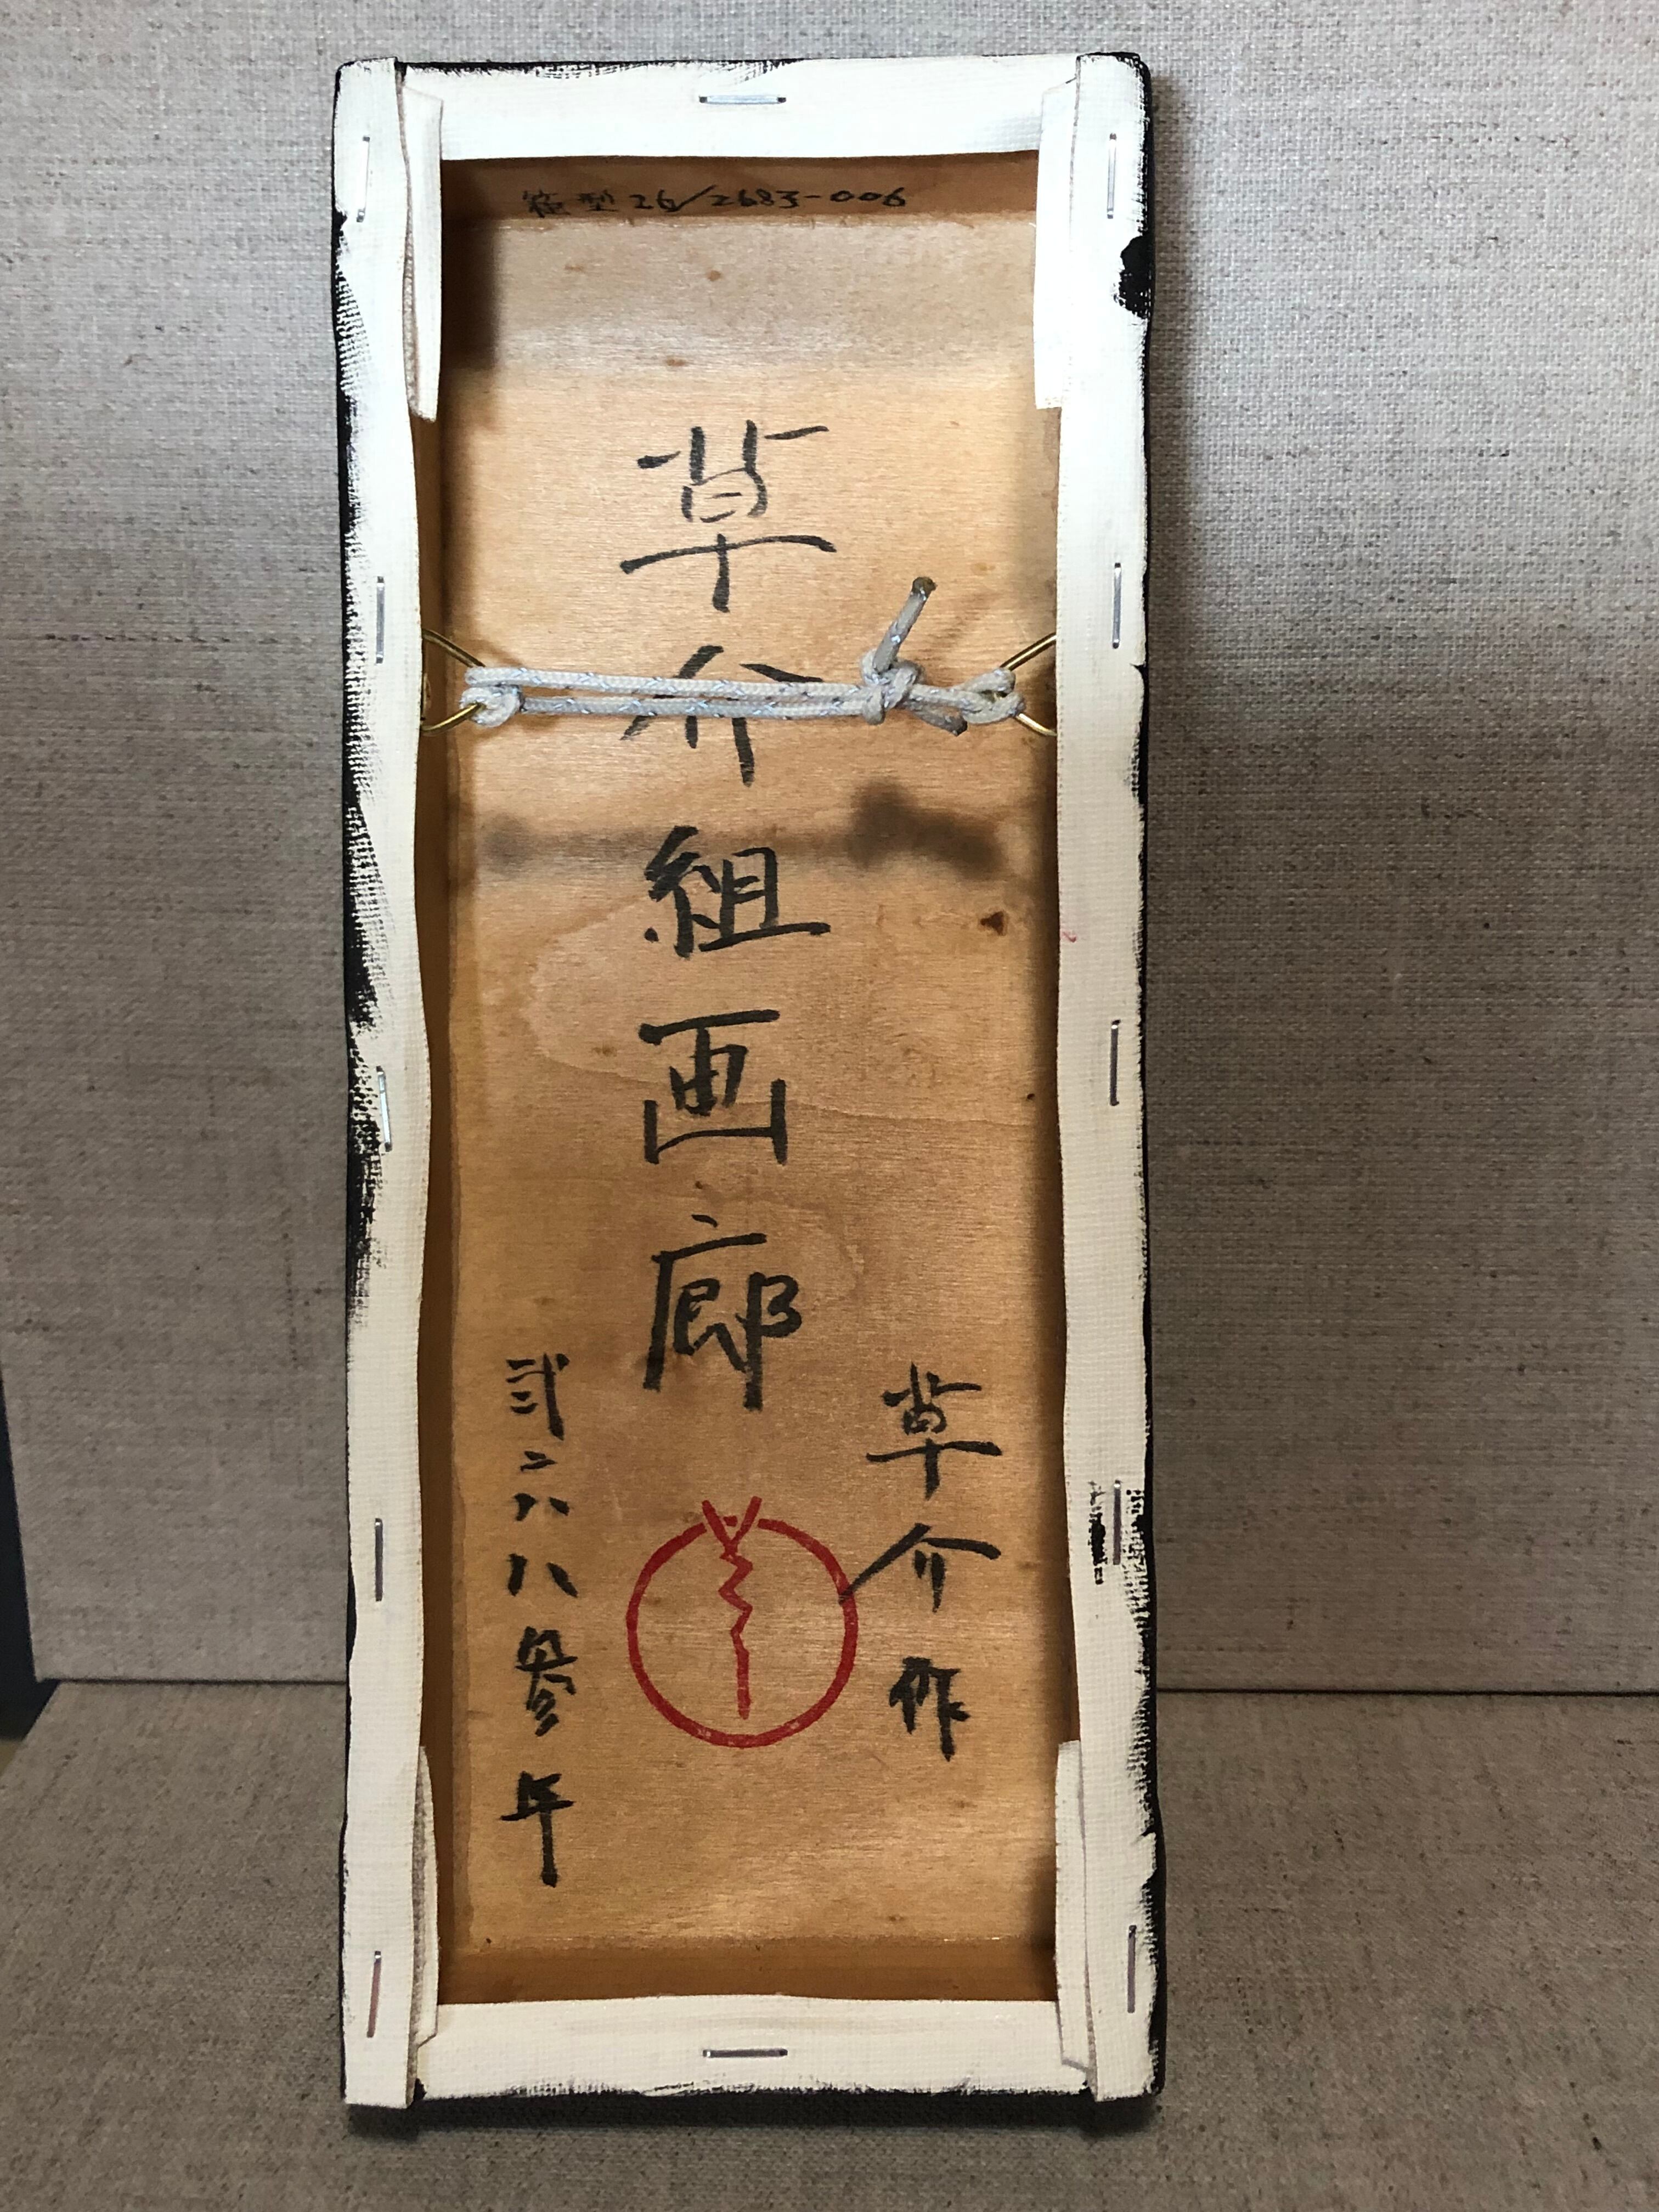 箱型26/2683-006
草介組画廊
草介作
弐六八參年